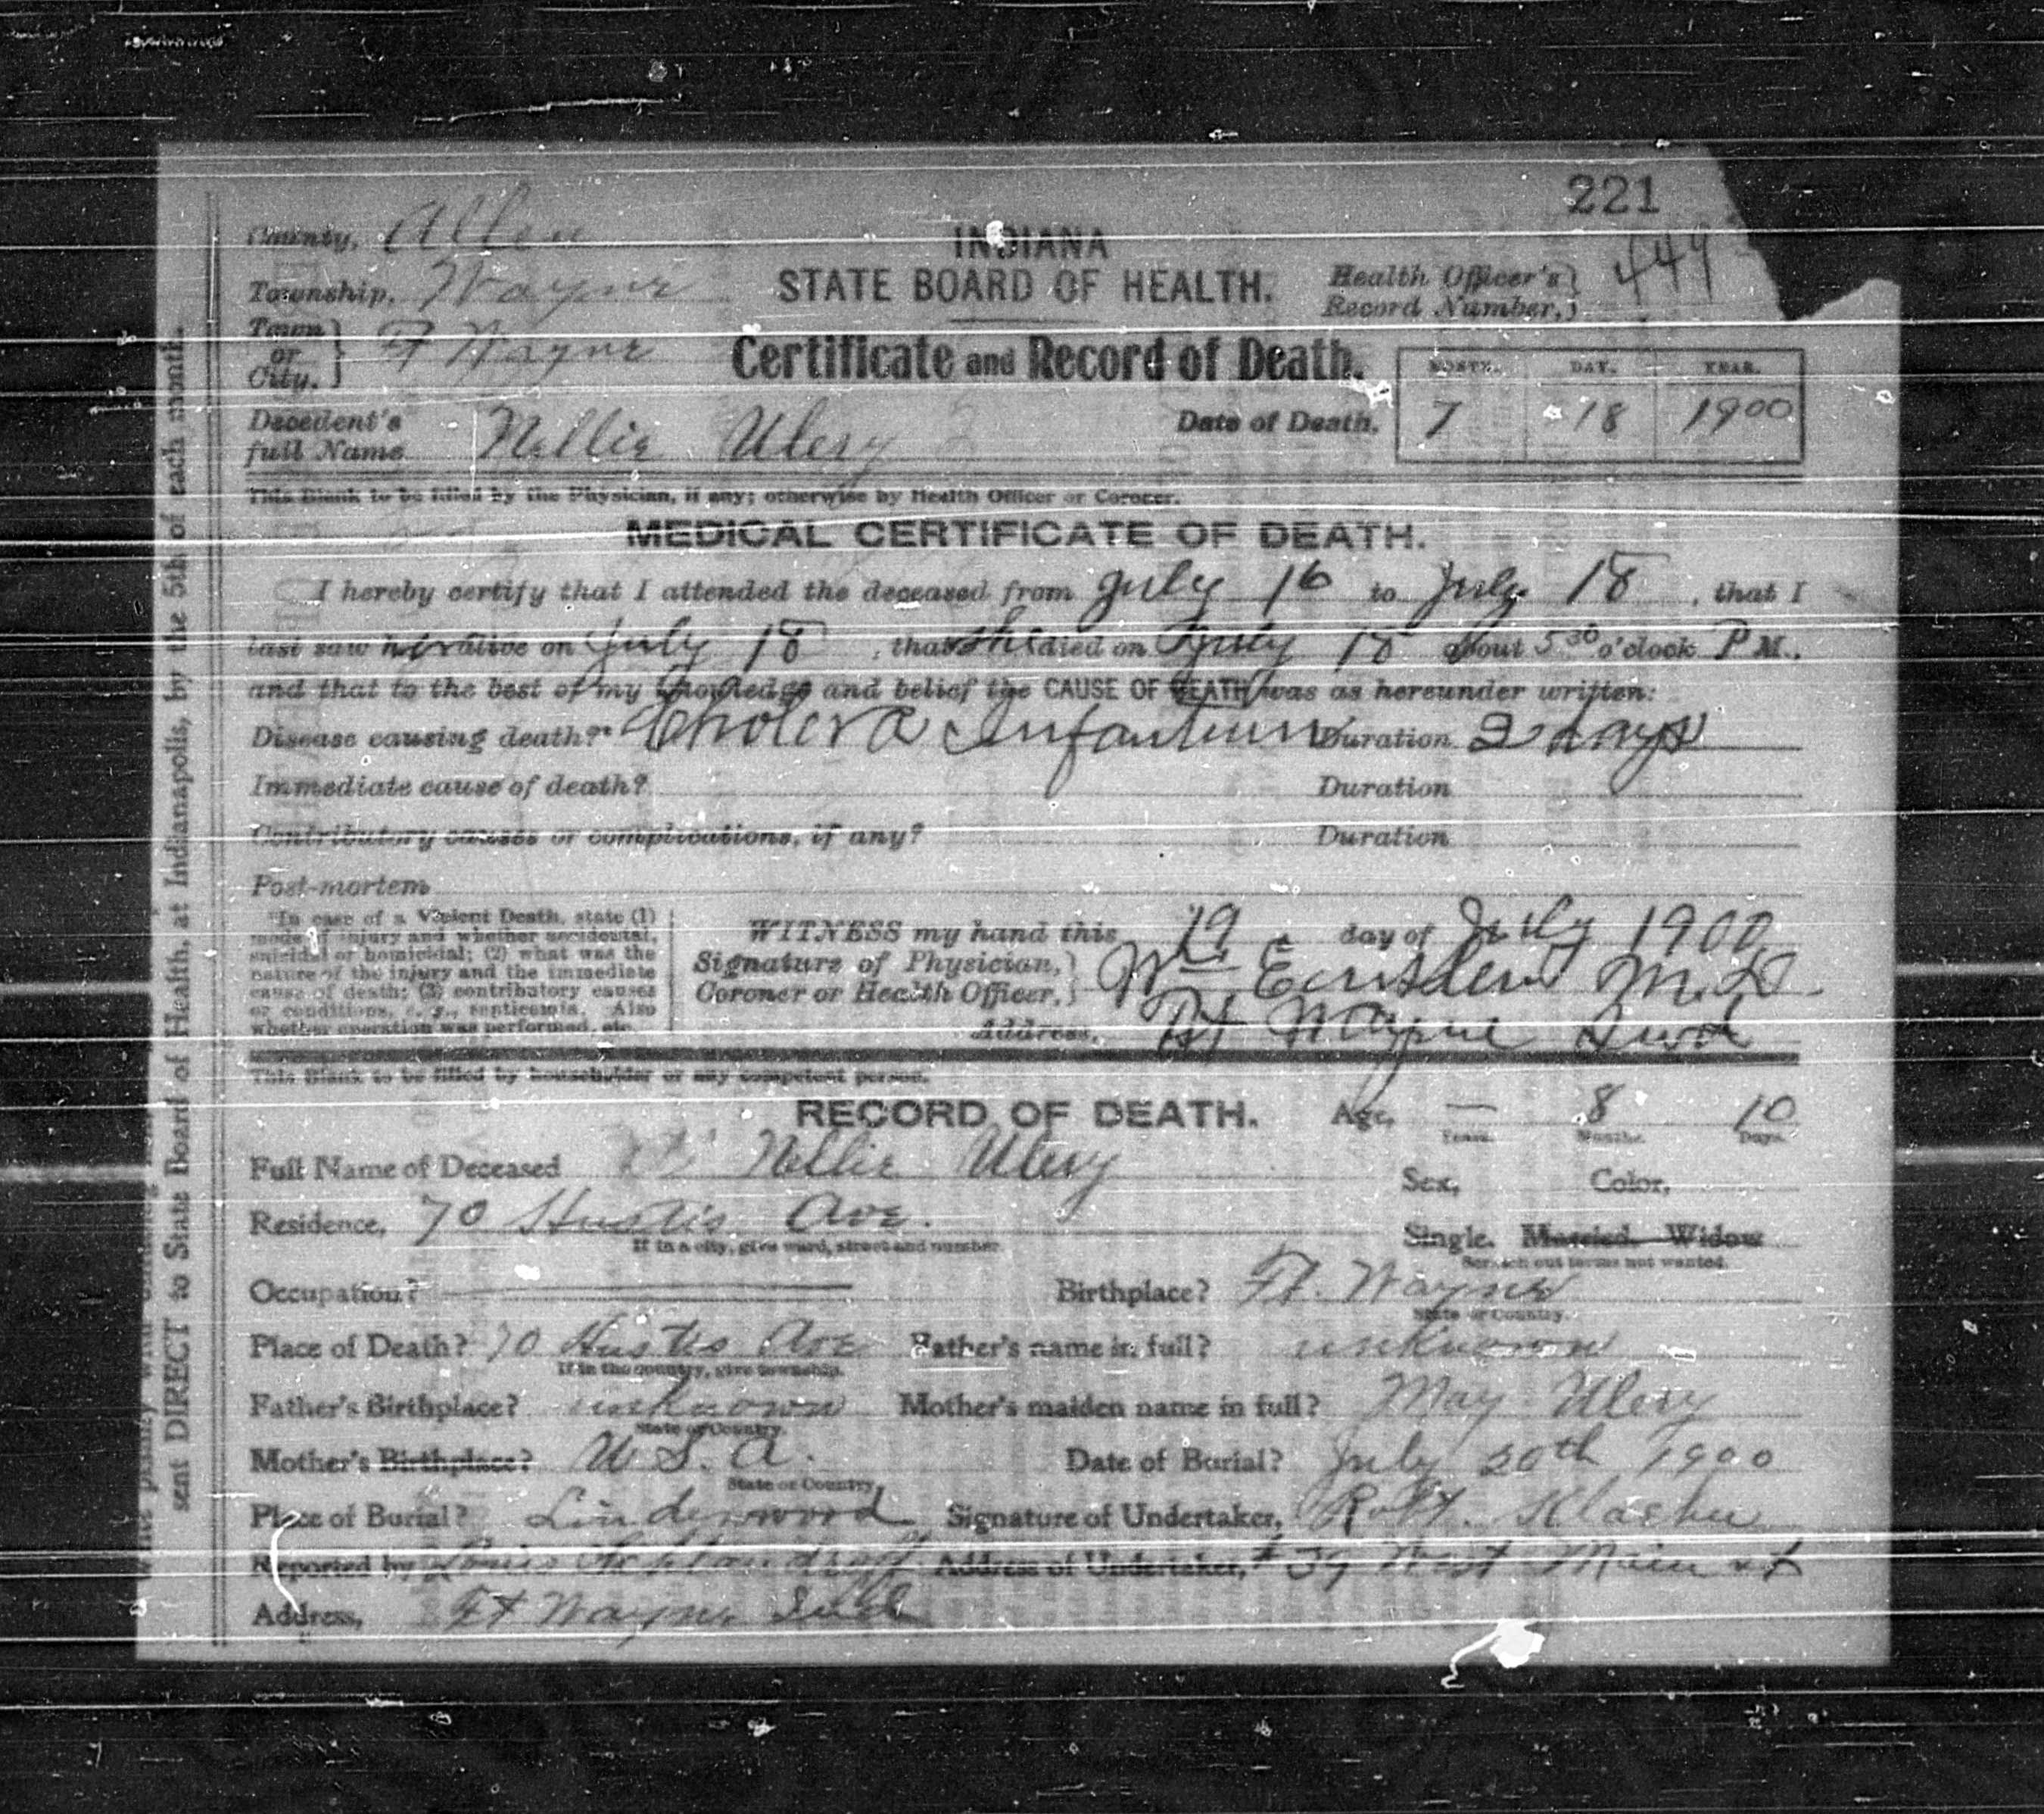 221
County, Allen
INDIANA
Township, Wayne
STATE BOARD OF HEALTH.
Health Officer's } Record Number, 449
Town or City, } Ft Wayne
Certificate and Record of Death.
MONTH. DAY. YEAR.
Decedent's full Name Nellie Ulery
Date of Death, 7 18 1900
This Blank to be filled by the Physician, if any; otherwise by Health Officer or Coroner.
MEDICAL CERTIFICATE OF DEATH.
I hereby certify that I attended the deceased from July 16 to July 18, that I
last saw her alive on July 18, that she died on July 18 about 5 30 o'clock P M.,
and that to the best of my knowledge and belief the CAUSE OF DEATH was as hereunder written:
Disease causing death?* Cholera Infantum Duration 2 days
Immediate cause of death? Duration
Contributory causes or complications, if any? Duration
Post-mortem
*In case of a Violent Death, state (1)
mode of injury and whether accidental,
suicidal or homicidal; (2) what was the
nature of the injury and the immediate
cause of death; (3) contributory causes
or conditions, e. g., septicemia. Also
whether operation was performed, etc.
WITNESS my hand this 19 day of July 1900
Signature of Physician, Coroner or Health Officer, } Wm M.D.
Address, Ft Wayne Ind
This Blank to be filled by householder or any competent person.
RECORD OF DEATH. Age, — 8 10
Years. Months. Days.
Full Name of Deceased Nellie Ulery
Sex, Color,
Residence, 70 Hustis Ave.
If in a city, give ward, street and number.
Single. Married. Widow
Scratch out terms not wanted.
Occupation? Birthplace? Ft. Wayne
State or Country.
Place of Death? 70 Hustis Ave Father's name in full? unknown
If in the country, give township.
Father's Birthplace? unknown Mother's maiden name in full? May Ulery
State or Country.
Mother's Birthplace? U S. A. Date of Burial? July 20th 1900
State or Country.
Place of Burial? Lindenwood Signature of Undertaker, Robt. Klaehn
Reported by Louis Address of Undertaker, # 39 West Main st
Address, Ft Wayne Ind
sent DIRECT to State Board of Health, at Indianapolis, by the 5th of each month.